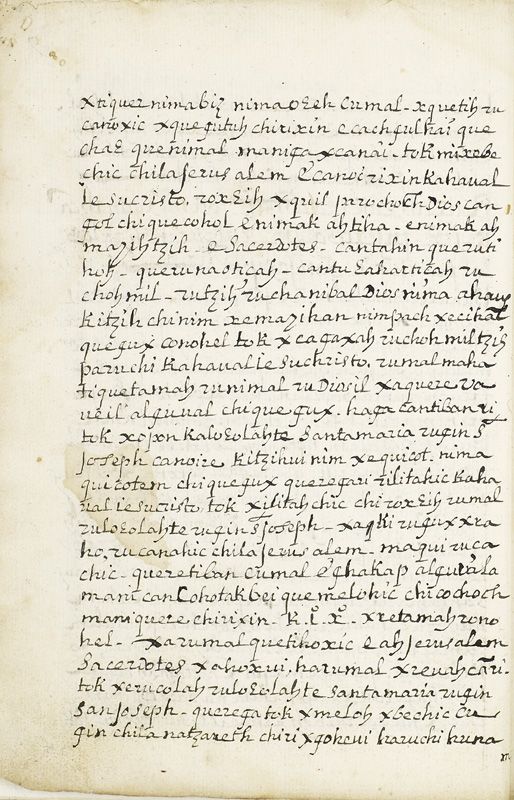 xtiquer nimabiz nimaoɛeh cumal - xquetih ru
canoxic xquegutuh chirixin e cachgulhai que
chaɛ quenimal maniga xcanai - tok mixebe
chic chila Jerusalem e canoi rixin Kahaual
Iesucristo. roxɛih xquil pa rochoch Dios can
gol chiquecohol e nimak ahtiha - enimak ah
mayihtzih - e Sacerdotes - cantahin queruti
hoh - querunaoticah - cantuɛaharticah ru
chohmil - rutzih ruchanibal Dios nima ahaus
Kitzih chinim xemayihan nimpach xecikal
quegux conohel tok xcagaxah ruchohmiltzih
paruchi Kahaual Iesuchristo. rumal maha
tiquetamah runimal ru Diosil xaquere va
ueil alguual chiquegux. haga cantiban ri
tok xojon kaloɛolahte Santamaria rugin S
Joseph canoire Kitzihui nim xequicot. nima
quicotem chiquegux queregari xilitahic Kaha
ual iesucristo tok xilitah chic chiroxɛih rumal
ruloɛolahte rugin S Joseph - xaqki rugux xra
ho. rucanahic chila Jerusalem - maquiruca
chic - queretiban cumal e ghakap alguala
mani can Cohotak bei que melohic chicochoch
mani quere chirixin - K.I.X. - xretamah rono
hel - xarumal quetihoxic e ah Jerusalem
Sacerdotes xahoxui. harumal xreuah cari.
tok xerucolah ruloɛolahte Santamaria rugin
San Joseph - querega tok xmeloh xbechic cu
gin chila natzareth chiri xgoheui haruchi huna